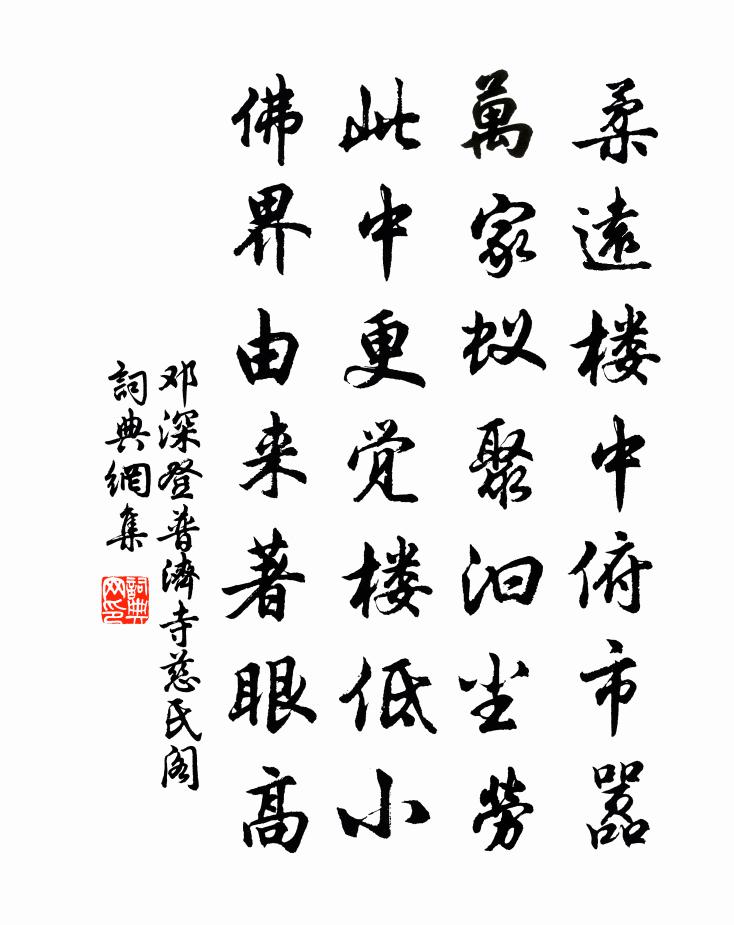 柔遠楼中俯市嚣
萬家蚁聚汩尘勞
此中更觉楼低小
佛界由来著眼高
邓深登普濟寺慈民阁
詞典網集
詞典网印